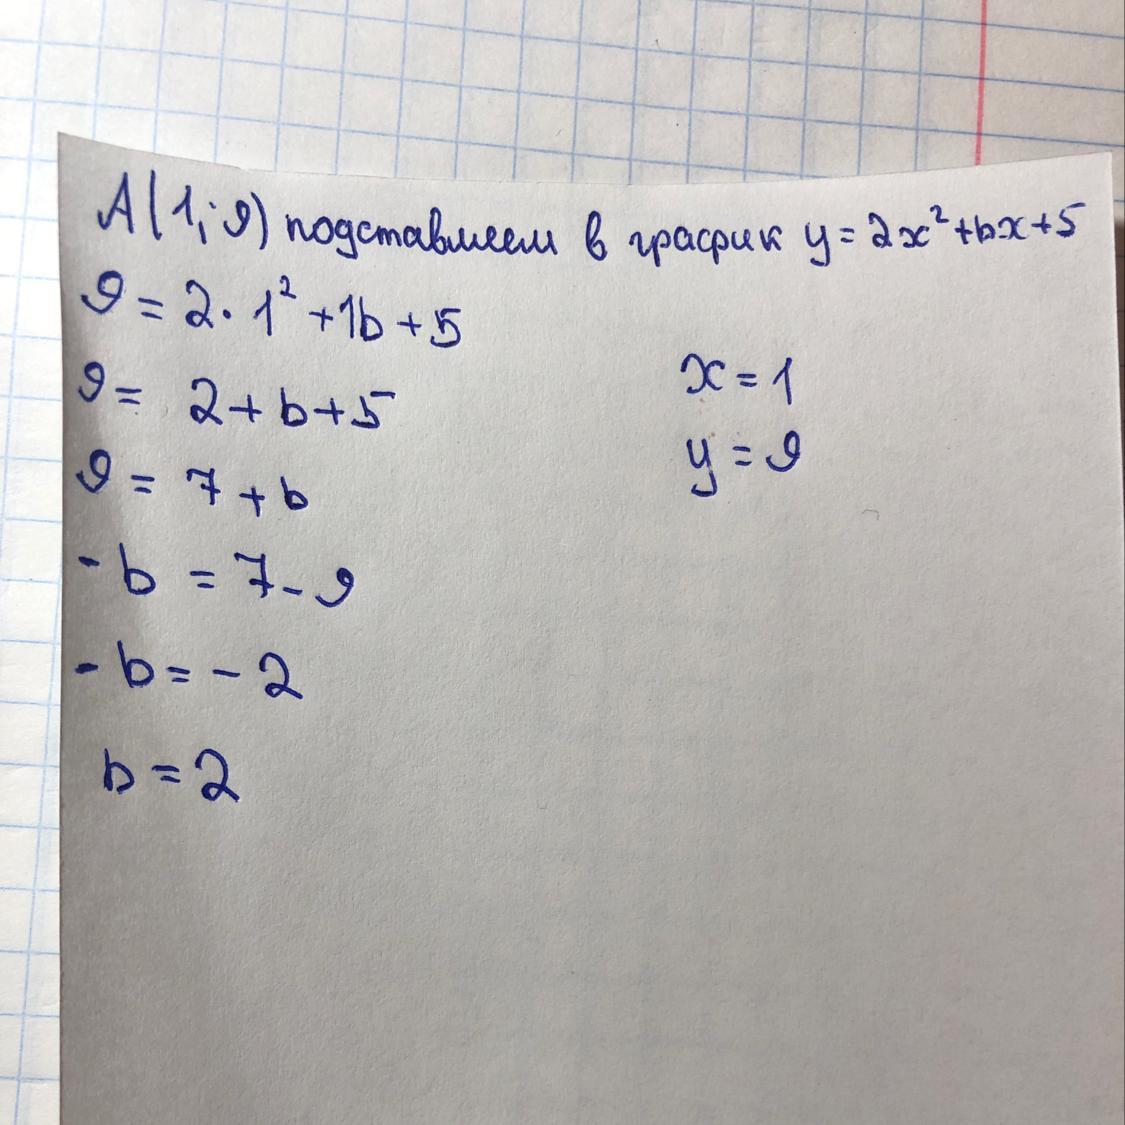 A(1; 9) подставляем в график y = 2x² + bx + 5
9 = 2 · 1² + 1b + 5
9 = 2 + b + 5
9 = 7 + b
- b = 7 - 9
- b = - 2
b = 2
x = 1
y = 9